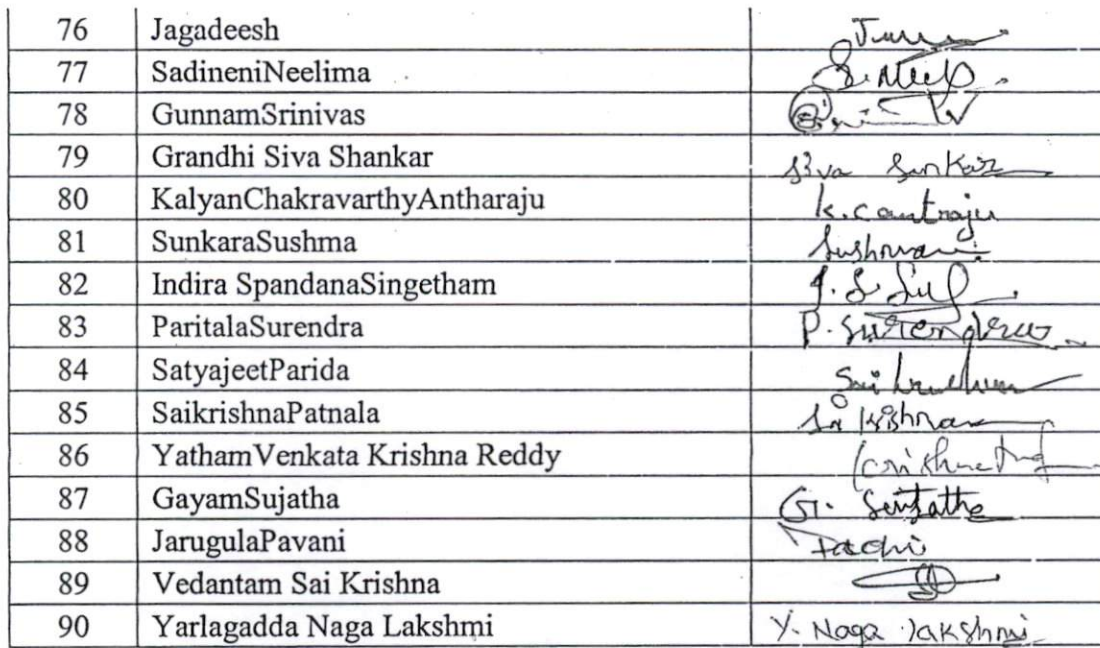 76 Jagadeesh
77 SadineniNeelima S. Neel
78 GunnamSrinivas
79 Grandhi Siva Shankar Siva Sankar
80 KalyanChakravarthyAntharaju k.c antraju
81 SunkaraSushma Sushma
82 Indira SpandanaSingetham
83 ParitalaSurendra P. Surendra
84 SatyajeetParida
85 SaikrishnaPatnala Sai krishna
86 YathamVenkata Krishna Reddy
87 GayamSujatha G. Sujatha
88 JarugulaPavani
89 Vedantam Sai Krishna
90 Yarlagadda Naga Lakshmi Y. Naga lakshmi